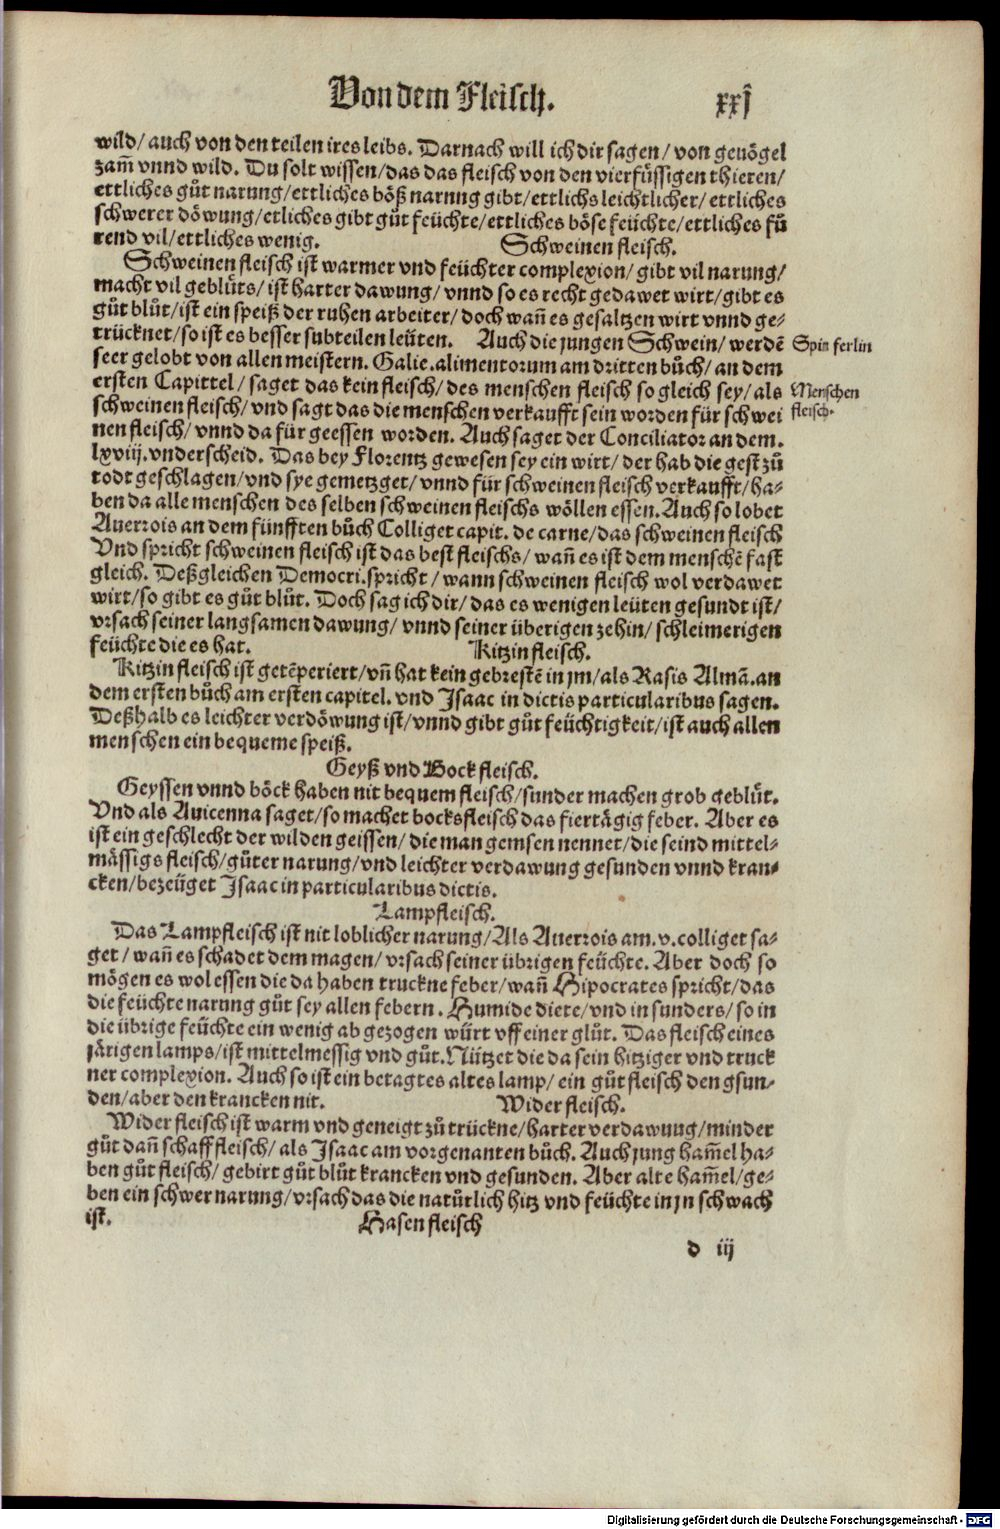 Von dem Fleisch.
xxj
wild/ auch von den teilen ires leibs. Darnach will ich dir sagen/ von geuögel
zam̄ vnnd wild. Du solt wissen/das das fleisch von den vierfüssigen thieren/
ettliches gůt narung/ettliches böß narung gibt/ettlichs leichtlicher/ettliches
schwerer döwung/etliches gibt gůt feüchte/ettliches böse feüchte/ettliches fů
rend vil/ettliches wenig.
Schweinen fleisch.
Schweinen fleisch ist warmer vnd feüchter complexion/ gibt vil narung/
macht vil geblüts/ ist harter dawung/ vnnd so es recht gedawet wirt/gibt es
gůt blůt/ist ein speiß der ruhen arbeiter/ doch wañ es gesaltzen wirt vnnd ge-
trücknet/so ist es besser subteilen leüten. Auch die jungen Schwein/ werdē
Spin ferlin
seer gelobt von allen meistern. Galie.alimentorum am dritten bůch/ an dem
ersten Capittel/ saget das kein fleisch/ des menschen fleisch so gleich sey/ als
Menschen
schweinen fleisch/ vnd sagt das die menschen verkaufft sein worden für schwei
fleisch.
nen fleisch/ vnnd da für geessen worden. Auch saget der Conciliator an dem.
lxviij.vnderscheid. Das bey Florentz gewesen sey ein wirt/ der hab die gest zů
todt geschlagen/vnd sye gemetzget/vnnd für schweinen fleisch verkaufft/ha-
ben da alle menschen des selben schweinen fleischs wöllen essen. Auch so lobet
Auerrois an dem fünfften bůch Colliget capit. de carne/das schweinen fleisch
Vnd spricht schweinen fleisch ist das best fleischs/ wañ es ist dem menschē fast
gleich. Deßgleichen Democri.spricht/ wann schweinen fleisch wol verdawet
wirt/so gibt es gůt blůt. Doch sag ich dir/ das es wenigen leüten gesundt ist/
vrsach seiner langsamen dawung/ vnnd seiner überigen zehin/ schleimerigen
feüchte die es hat.
Kitzin fleisch.
Kitzin fleisch ist getēperiert/vñ hat kein gebrestē in jm/als Rasis Almā.an
dem ersten bůch am ersten capitel. vnd Isaac in dictis particularibus sagen.
Deßhalb es leichter verdöwung ist/vnnd gibt gůt feüchtigkeit/ist auch allen
menschen ein bequeme speiß.
Geyß vnd Bock fleisch.
Geyssen vnnd böck haben nit bequem fleisch/sunder machen grob geblüt.
Vnd als Auicenna saget/so machet bocksfleisch das fiertägig feber. Aber es
ist ein geschlecht der wilden geissen/ die man gemsen nennet/die seind mittel-
mässigs fleisch/gůter narung/vnd leichter verdawung gesunden vnnd kran-
cken/bezeüget Isaac in particularibus dictis.
Lampfleisch.
Das Lampfleisch ist nit loblicher narung/Als Auerrois am.v.colliget sa-
get/ wañ es schadet dem magen/ vrsach seiner übrigen feüchte. Aber doch so
mögen es wol essen die da haben truckne feber/wañ Hipocrates spricht/das
die feüchte narung gůt sey allen febern. Humide diete/vnd in sunders/so in
die übrige feüchte ein wenig ab gezogen würt vff einer glůt. Das fleisch eines
järigen lamps/ist mittelmessig vnd gůt.Nützet die da sein hitziger vnd truck
ner complexion. Auch so ist ein betagtes altes lamp/ ein gůt fleisch den gsun-
den/aber den krancken nit.
Wider fleisch.
Wider fleisch ist warm vnd geneigt zů trückne/harter verdawung/minder
gůt dañ schaff fleisch/ als Isaac am vorgenanten bůch. Auch jung ham̄el ha-
ben gůt fleisch/ gebirt gůt blůt krancken vnd gesunden. Aber alte ham̄el/ge-
ben ein schwer narung/vrsach das die natürlich hitz vnd feüchte in jn schwach
ist.
Hasen fleisch
d iij
Digitalisierung gefördert durch die Deutsche Forschungsgemeinschaft - DFG